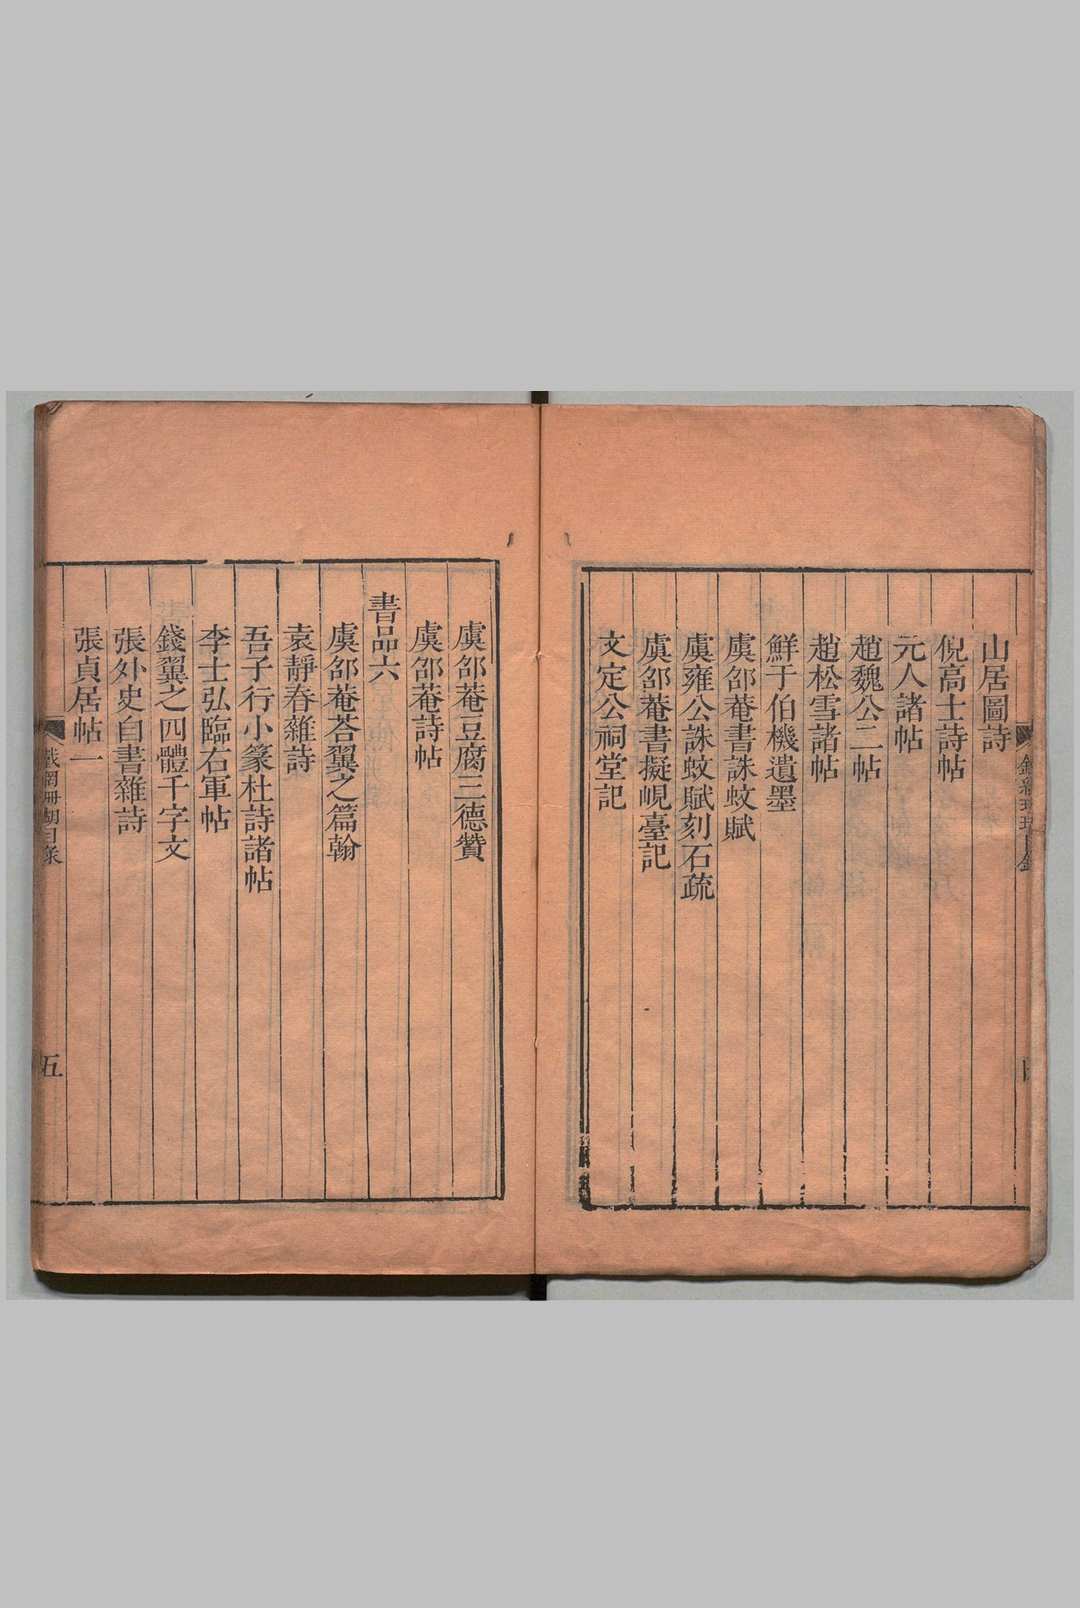 山居圖詩
倪高士詩帖
元人諸帖
趙魏公二帖
趙松雪諸帖
鮮于伯機遺墨
虞邵菴書誅蚊賦
虞雍公誅蚊賦刻石疏
虞邵菴書擬峴臺記
文定公祠堂記
虞邵菴豆腐三德贊
虞邵菴詩帖
書品六
虞邵菴荅翼之篇翰
袁靜春雜詩
吾子行小篆杜詩諸帖
李士弘臨右軍帖
錢翼之四體千字文
張外史自書雜詩
張貞居帖一
五